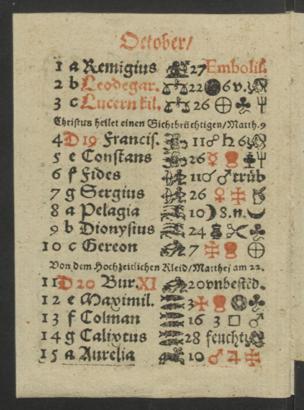 October/
1 a Remigius 27 Embolis.
2 b Leodegar. 22 6 v.
3 c Lucern kil. 26
Christus heilet einen Gichtbrüchtigen/Matth. 9
4 D 19 Francis. 11 ☍ ♄ 6
5 e Constans 26 ☿
6 f Fides 11 ☌ ♂ trüb
7 g Sergius 26 ♀
8 a Pelagia 10 ☽ 8 n.
9 b Dionysius 24
10 c Gereon 7
Von dem Hochzeitlichen Kleid/Matthej am 22.
11 D 20 Bur. XI 20 vnbestěd.
12 e Maximil. 3
13 f Colman 16 3 □ ♂
14 g Calixtus 28 feucht
15 a Aurelia 10 ♂ ♃